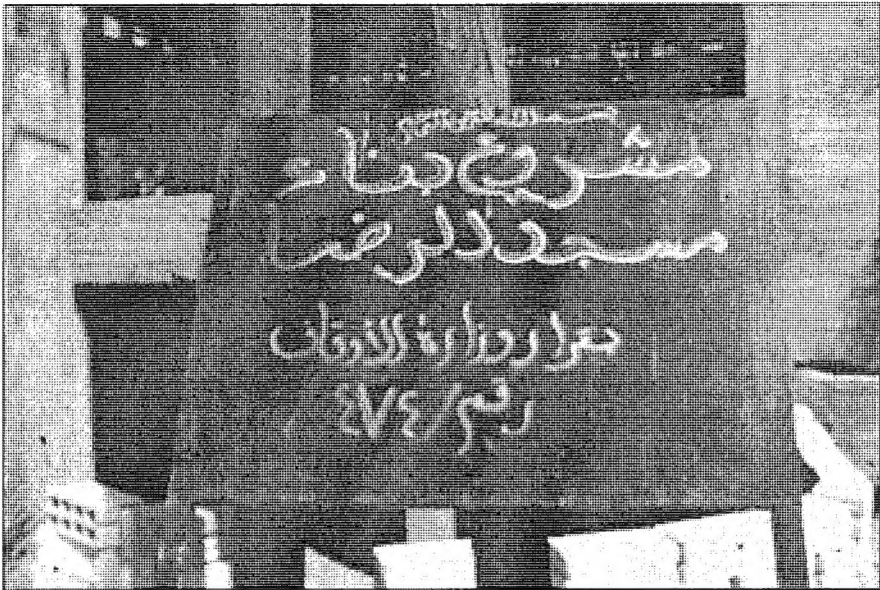 بسم الله الرحمن الرحيم
مشروع بناء
مسجد الرضا
بقرار وزارة الأوقاف
رقم / ٤٧٤